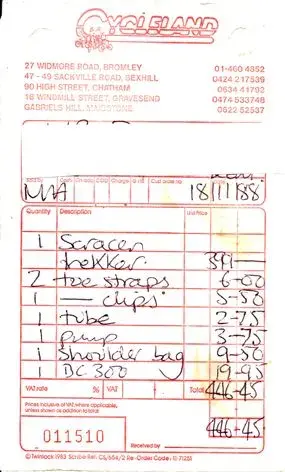 CYCLELAND
27 WIDMORE ROAD, BROMLEY 01-460 4852
47 - 49 SACKVILLE ROAD, BEXHILL 0424 217539
90 HIGH STREET, CHATHAM 0634 41792
16 WINDMILL STREET, GRAVESEND 0474 533748
GABRIELS HILL, MAIDSTONE 0622 52537
Sold by Cash C.O.D. Charge Cust order no.
18/11/88
Quantity Description Unit Price
1 Saracen
trekker. 399 —
2 toe straps 6-00
1 — clips 5-50
1 tube 2-75
1 pump 3-75
1 shoulder bag 9-50
1 BC300 19-95
VAT rate % VAT Total 446-45
Prices inclusive of VAT where applicable,
unless shown as addition to total.
446-45
011510
Received by
© Twinlock 1983 Scribe Ref. CS/654/2 Re-Order Code: 10 71251